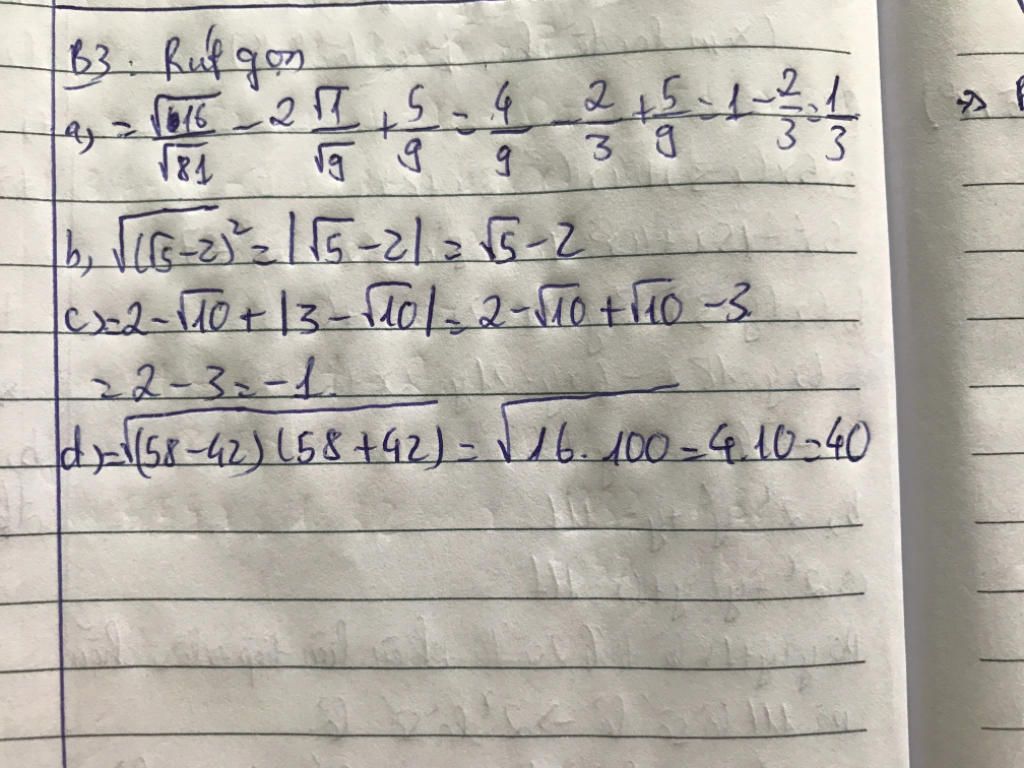 B3: Rút gọn
a, = √16/√81 - 2 √1/√9 + 5/9 = 4/9 - 2/3 + 5/9 = 1 - 2/3 = 1/3
b, √(√5-2)² = |√5-2| = √5-2
c) = 2-√10 + |3-√10| = 2-√10+√10 -3
= 2-3 = -1.
d) = √(58-42)(58+42) = √16.100 = 4.10 = 40